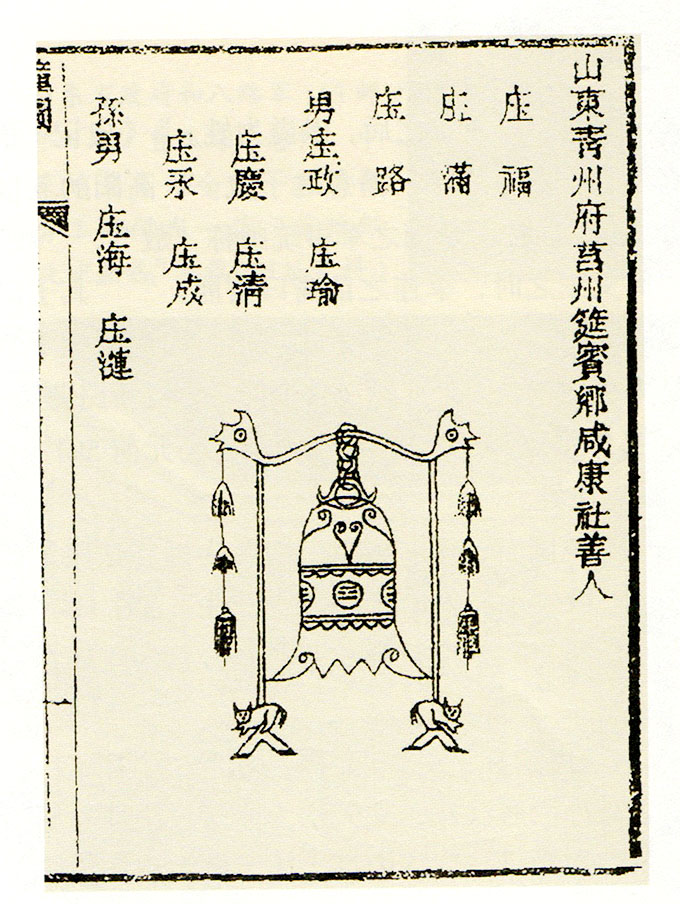 山東青州府莒州筵賓鄉咸康社善人
庄福
庄滿
庄路
男庄政 庄瑜
庄慶 庄清
庄永 庄成
孫男 庄海 庄漣
圖
一